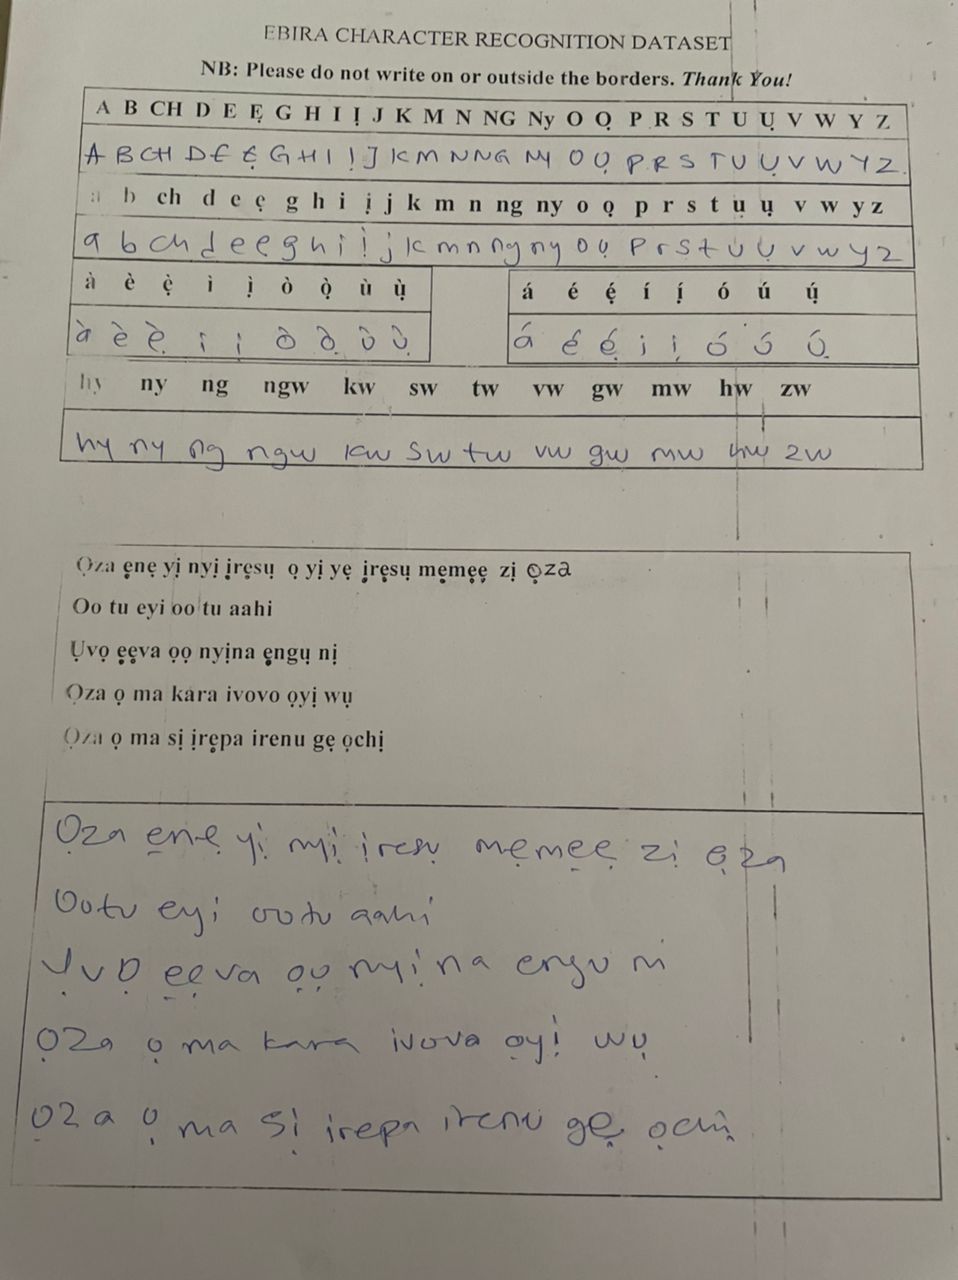 EBIRA CHARACTER RECOGNITION DATASET
NB: Please do not write on or outside the borders. Thank You!
A B CH D E Ẹ G H I Ị J K M N NG Ny O Ọ P R S T U Ụ V W Y Z
A B CH D E Ẹ G H I Ị J K M N NG NY O Ọ P R S T U Ụ V W Y Z
a b ch d e ẹ g h i ị j k m n ng ny o ọ p r s t ụ ụ v w y z
a b ch d e ẹ g h i ị j k m n ng ny o ọ p r s t u ụ v w y z
à è ẹ̀ ì ị̀ ò ọ̀ ù ụ̀ á é ẹ́ í ị́ ó ú ụ́
à è ẹ̀ ì ị̀ ò ọ̀ ù ụ̀ á é ẹ́ í ị́ ó ú ụ́
hy ny ng ngw kw sw tw vw gw mw hw zw
hy ny ng ngw kw sw tw vw gw mw hw zw
Ọza ẹnẹ yị nyị ịrẹsụ ọ yị yẹ ịrẹsụ mẹmẹẹ zị ọza
Oo tu eyi oo tu aahi
Ụvọ ẹẹva ọọ nyịna ẹngụ nị
Ọza ọ ma kara ivovo ọyị wụ
Ọza ọ ma sị ịrẹpa irenu gẹ ọchị
Ọza ẹnẹ yị nyị ịresụ mẹmẹẹ zị ọza
Ootu eyi oo tu aahi
Ụvọ ẹẹva ọọ nyịna engu ni
Ọza ọ ma kara ivovo ọyị wụ
Ọza ọ ma sị irepa irenu gẹ ọchị